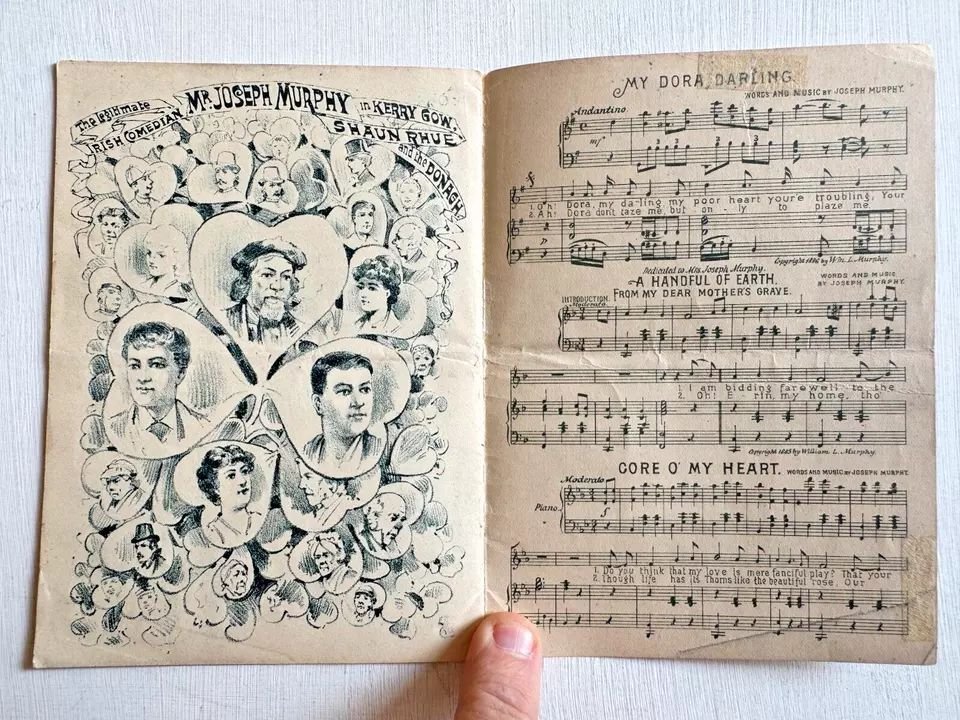 The legitimate
IRISH COMEDIAN
MR. JOSEPH MURPHY
in KERRY GOW,
SHAUN RHUE
and the DONAGH.
MY DORA, DARLING.
WORDS AND MUSIC BY JOSEPH MURPHY.
Andantino.
mf
1. Oh! Dora, my da-ling my poor heart youre troubling, Your
2. Ah! Dora dont taze me, but on-ly to plaze me
p
Copyright 1886 by Wm. L. Murphy.
Dedicated to Mrs. Joseph Murphy.
A HANDFUL OF EARTH,
FROM MY DEAR MOTHER'S GRAVE.
WORDS AND MUSIC
BY JOSEPH MURPHY.
INTRODUCTION.
Moderato.
1. I am bidding farewell to the
2. Oh! E-rin, my home, tho'
Copyright 1883 by William L. Murphy.
CORE O' MY HEART.
WORDS AND MUSIC BY JOSEPH MURPHY.
Moderato
Piano.
f
1. Do you think that my love is mere fanciful play? That your
2. Though life has its Thorns like the beautiful rose, Our